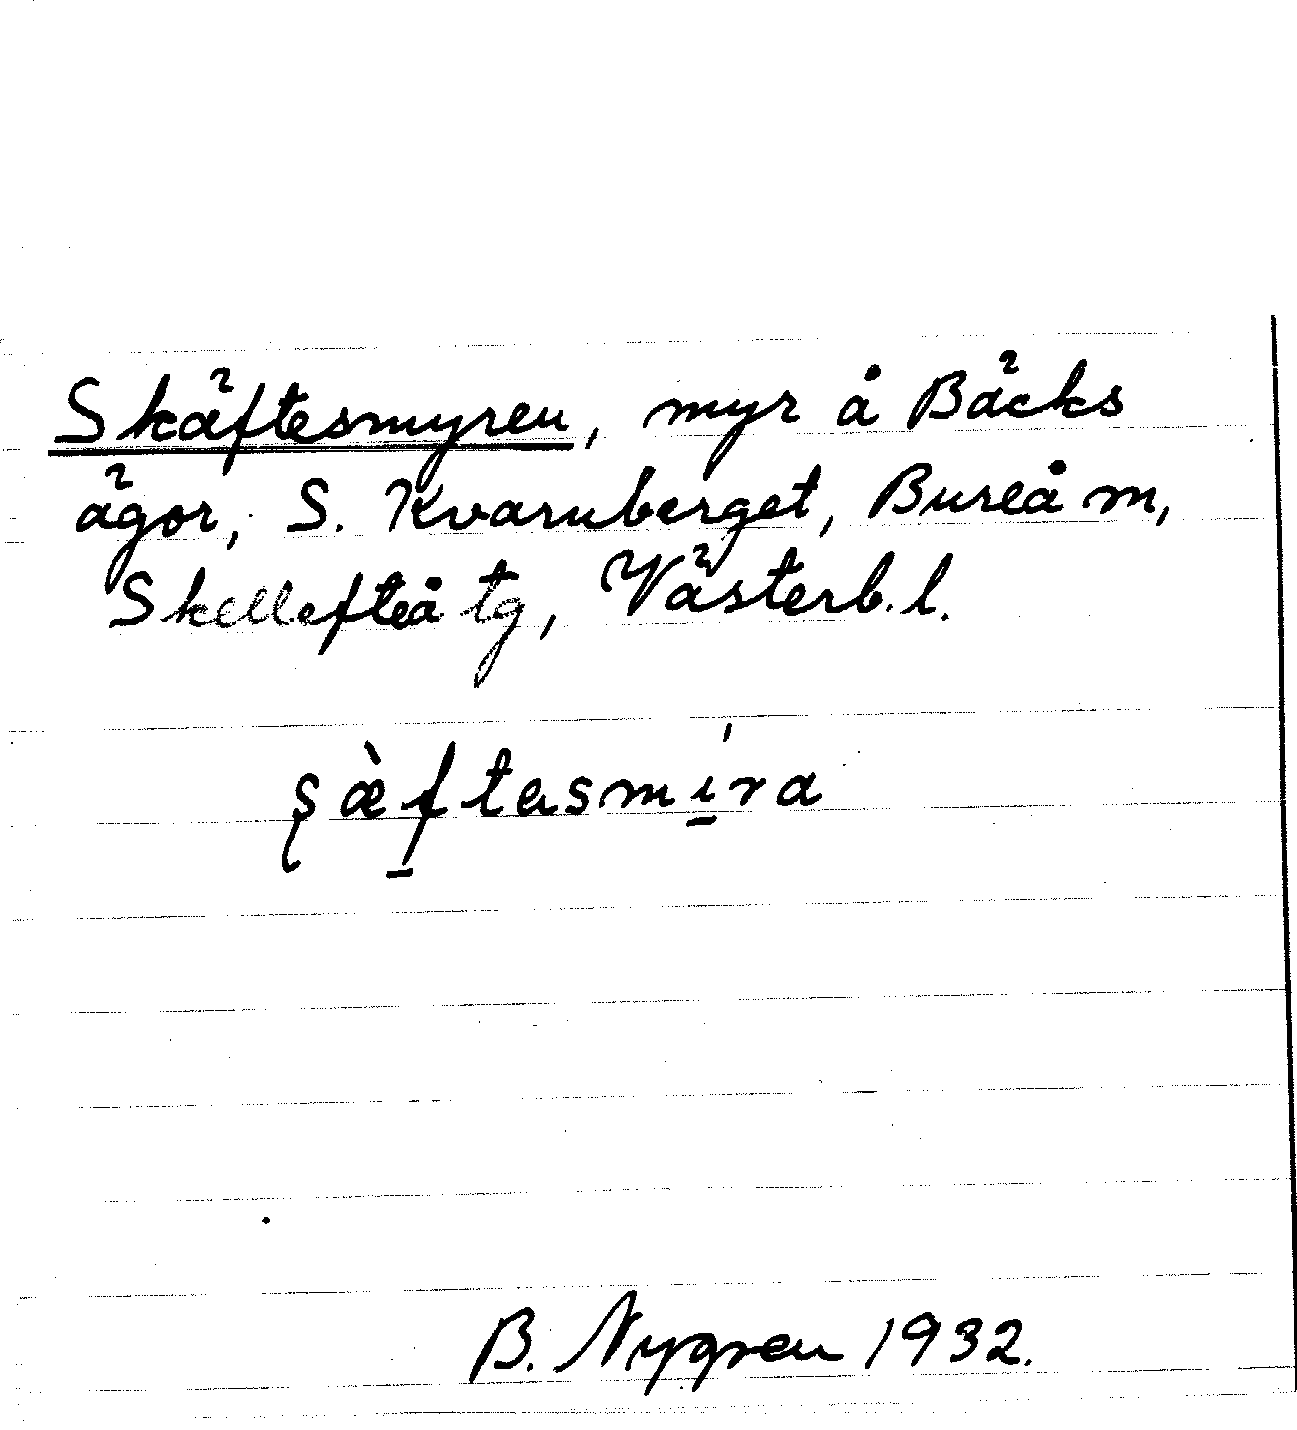 Skäftesmyren, myr å Bäcks
ägor, S. Kvarnberget, Bureå m,
Skellefteå tg, Västerb.l.
ʂæ̀f̱tasmí̱ra
B. Nygren 1932.